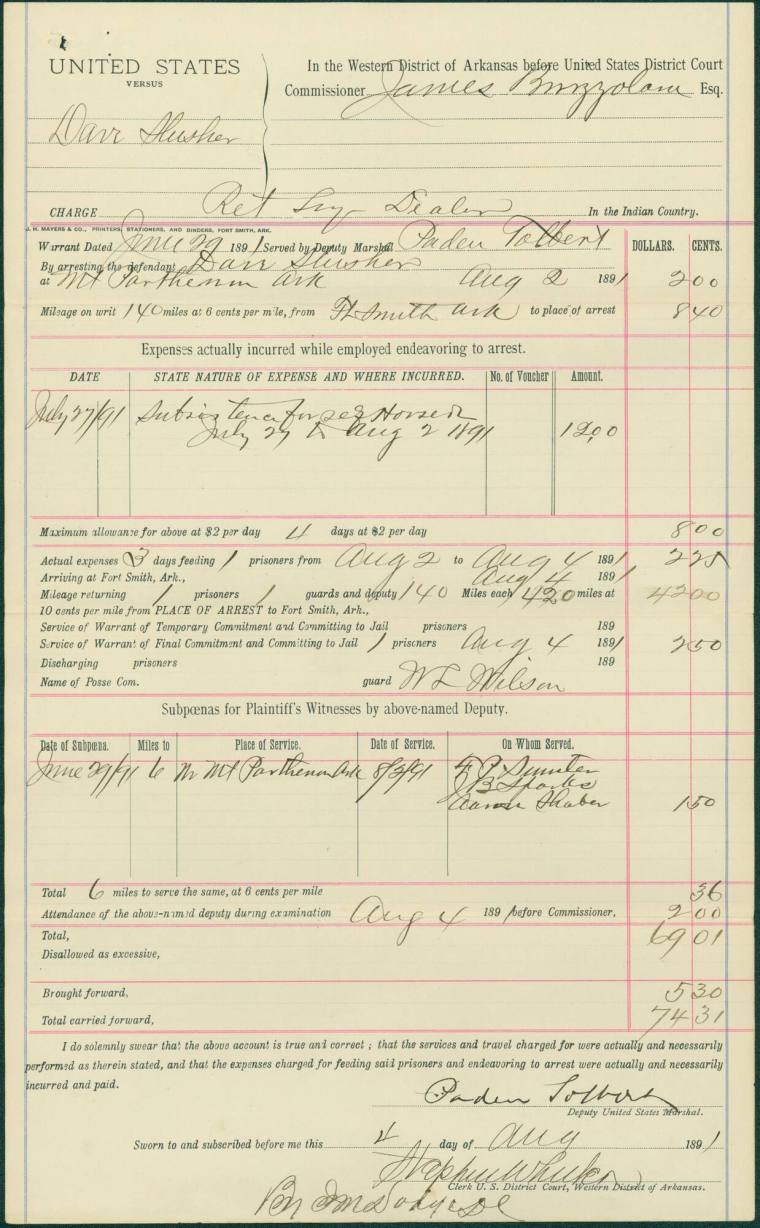 UNITED STATES
VERSUS
In the Western District of Arkansas before United States District Court
Commissioner James Brizzolara Esq.
Dave Slusher
CHARGE Ret Liq Dealer In the Indian Country.
J. H. MAYERS & CO., PRINTERS, STATIONERS, AND BINDERS, FORT SMITH, ARK.
Warrant Dated June 29 1891 Served by Deputy Marshal Paden Tolbert DOLLARS. CENTS.
By arresting the defendant Dave Slusher
at Mt Parthenon Ark Aug 2 1891 2 00
Mileage on writ 140 miles at 6 cents per mile, from Ft Smith Ark to place of arrest 8 40
Expenses actually incurred while employed endeavoring to arrest.
DATE STATE NATURE OF EXPENSE AND WHERE INCURRED. No. of Voucher Amount.
July 27/91 Subsistence for self Horse &
July 27 to Aug 2 1891 12 00
Maximum allowance for above at $2 per day 4 days at $2 per day 8 00
Actual expenses 3 days feeding 1 prisoners from Aug 2 to Aug 4 1891 2 25
Arriving at Fort Smith, Ark., Aug 4 1891
Mileage returning 1 prisoners 1 guards and deputy 140 Miles each 420 miles at 42 00
10 cents per mile from PLACE OF ARREST to Fort Smith, Ark.,
Service of Warrant of Temporary Commitment and Committing to Jail prisoners 189
Service of Warrant of Final Commitment and Committing to Jail 1 prisoners Aug 4 1891 2 50
Discharging prisoners 189
Name of Posse Com. guard W L Wilson
Subpœnas for Plaintiff's Witnesses by above-named Deputy.
Date of Subpœna. Miles to Place of Service. Date of Service. On Whom Served.
June 29/91 6 Nr Mt Parthenon Ark 8/2/91 F P Sumter
J B Sparks
Aaron Shaber 1 50
Total 6 miles to serve the same, at 6 cents per mile 36
Attendance of the above-named deputy during examination Aug 4 1891 before Commissioner, 2 00
Total, 69 01
Disallowed as excessive,
Brought forward, 5 30
Total carried forward, 74 31
I do solemnly swear that the above account is true and correct ; that the services and travel charged for were actually and necessarily
performed as therein stated, and that the expenses charged for feeding said prisoners and endeavoring to arrest were actually and necessarily
incurred and paid.
Paden Tolbert
Deputy United States Marshal.
Sworn to and subscribed before me this 4 day of Aug 1891
Stephen Wheeler
Clerk U. S. District Court, Western District of Arkansas.
By I M Dodge DC